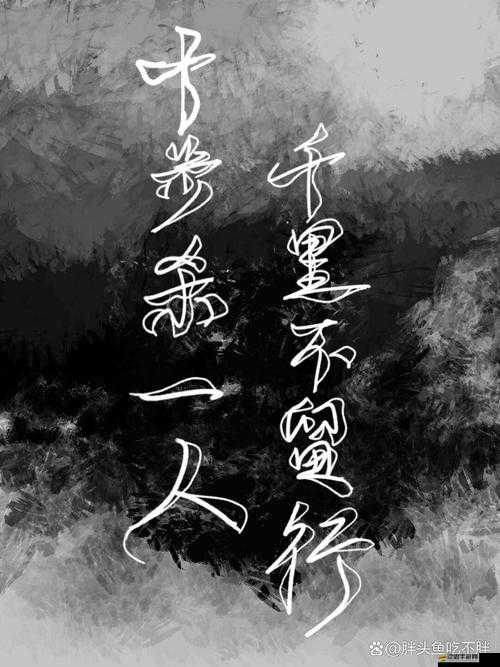 十步杀一人
千里不留行
@胖头鱼吃不胖